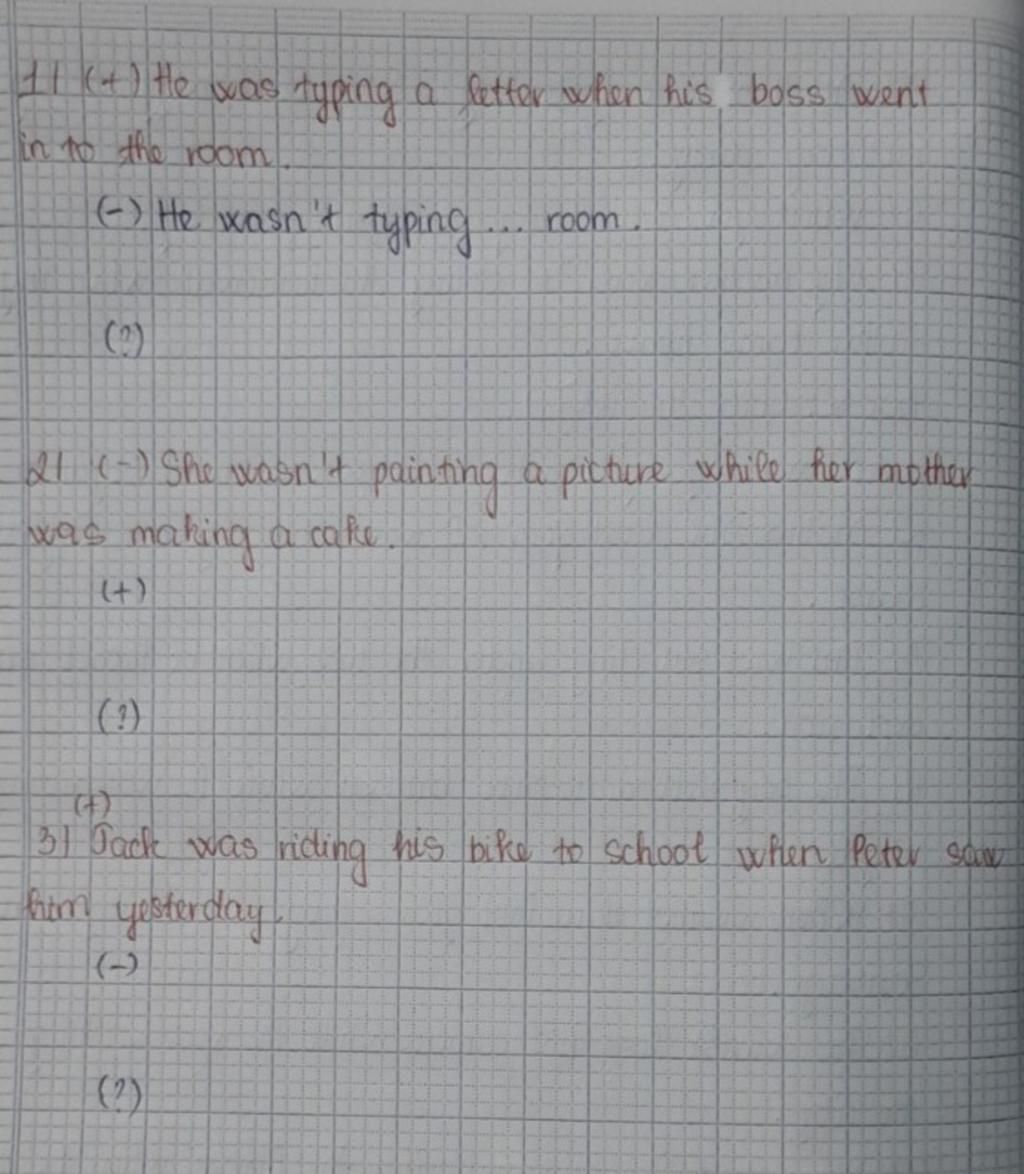 1) (+) He was typing a letter when his boss went
in to the room.
(-) He wasn't typing... room.
(?)
2) (-) She wasn't painting a picture while her mother
was making a cake.
(+)
(?)
(+)
3) Jack was riding his bike to school when Peter saw
him yesterday.
(-)
(?)